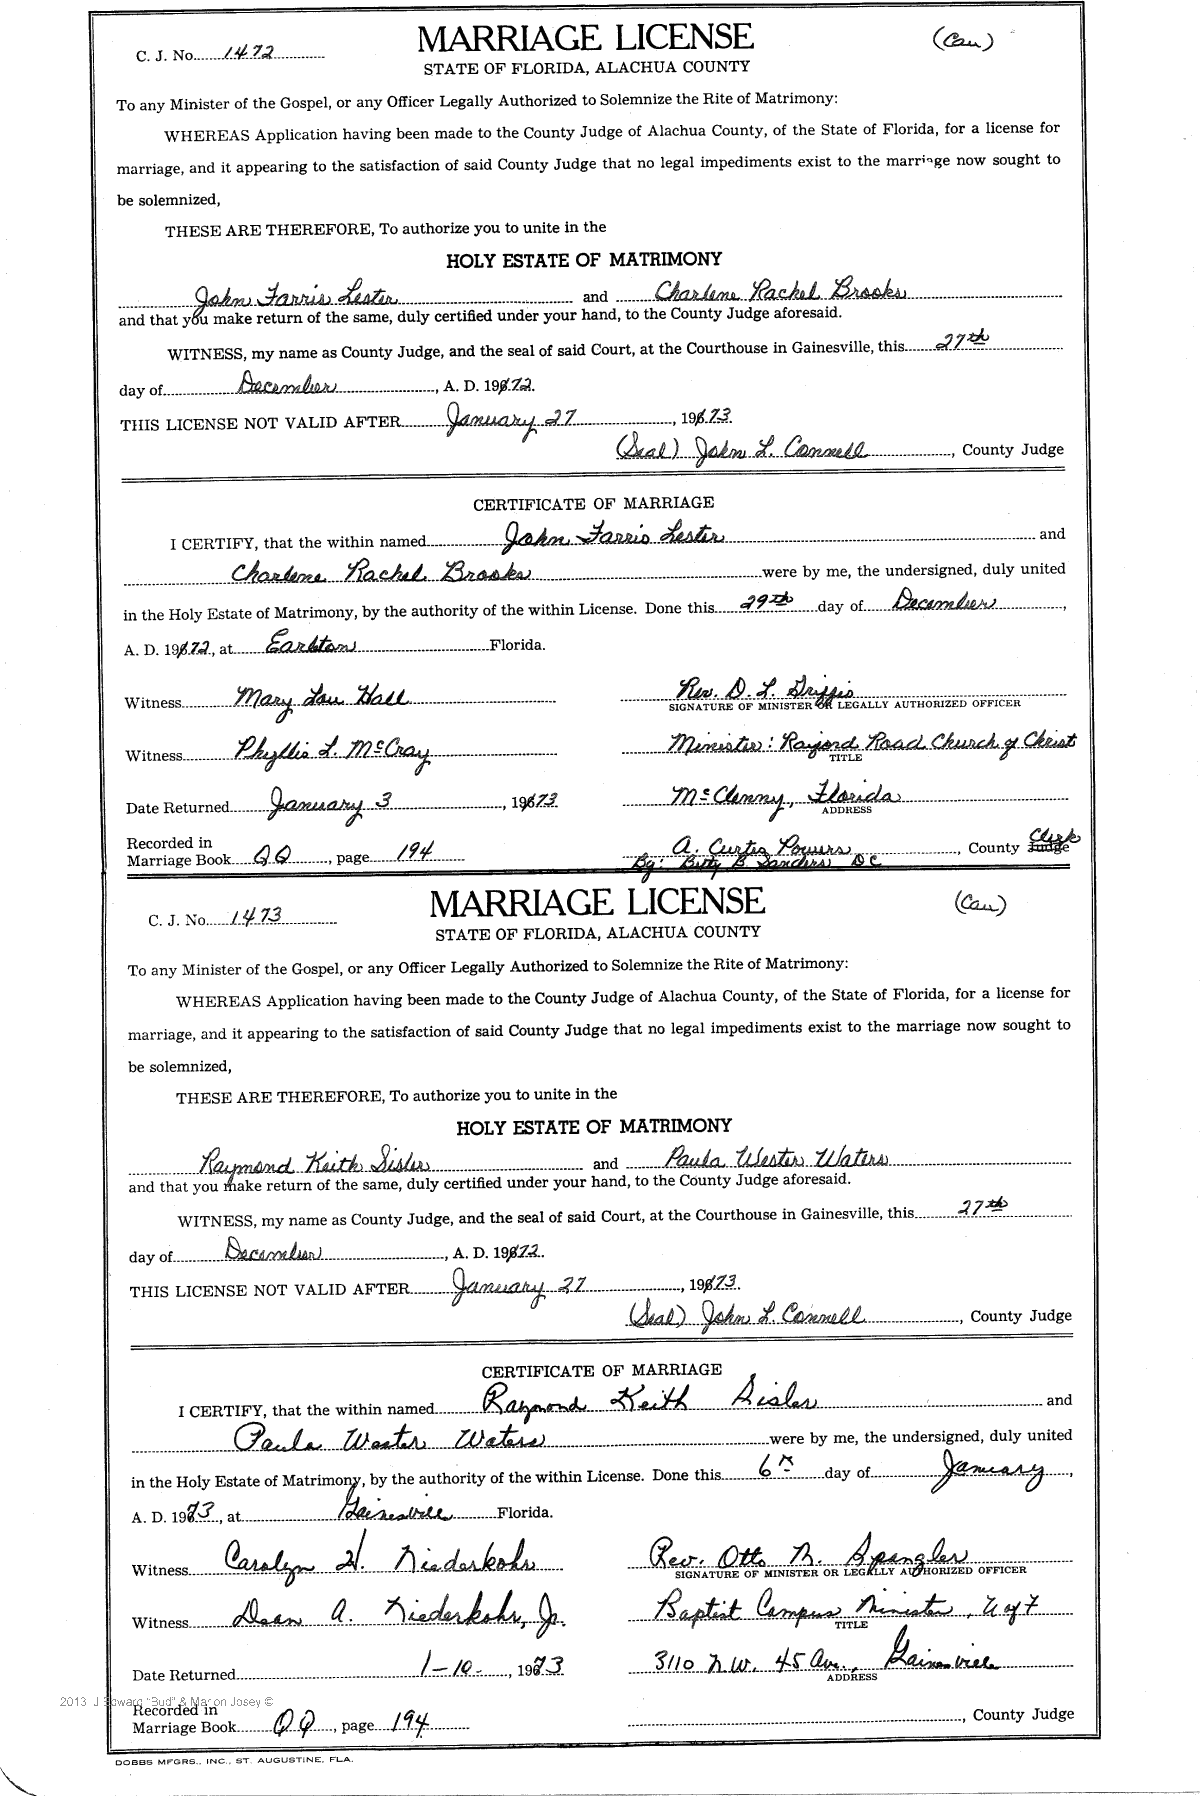 MARRIAGE LICENSE
(Cau)
C. J. No. 1472
STATE OF FLORIDA, ALACHUA COUNTY
To any Minister of the Gospel, or any Officer Legally Authorized to Solemnize the Rite of Matrimony:
WHEREAS Application having been made to the County Judge of Alachua County, of the State of Florida, for a license for
marriage, and it appearing to the satisfaction of said County Judge that no legal impediments exist to the marriage now sought to
be solemnized,
THESE ARE THEREFORE, To authorize you to unite in the
HOLY ESTATE OF MATRIMONY
John Farris Lester and Charlene Rachel Brooks
and that you make return of the same, duly certified under your hand, to the County Judge aforesaid.
WITNESS, my name as County Judge, and the seal of said Court, at the Courthouse in Gainesville, this 27th
day of December, A. D. 1972.
THIS LICENSE NOT VALID AFTER January 27, 1973.
(Seal) John L. Connell, County Judge
CERTIFICATE OF MARRIAGE
I CERTIFY, that the within named John Farris Lester and
Charlene Rachel Brooks were by me, the undersigned, duly united
in the Holy Estate of Matrimony, by the authority of the within License. Done this 29th day of December,
A. D. 1972, at Earleton Florida.
Witness Mary Lou Hall Rev. D. L. Griffis
SIGNATURE OF MINISTER OR LEGALLY AUTHORIZED OFFICER
Witness Phyllis L. McCray Minister: Raiford Road Church of Christ
TITLE
Date Returned January 3, 1973 McClenny, Florida
ADDRESS
Recorded in
Marriage Book QQ, page 194 A. Curtis Powers, County Judge Clerk
By: Betty B Sanders DC
MARRIAGE LICENSE
(Cau)
C. J. No. 1473
STATE OF FLORIDA, ALACHUA COUNTY
To any Minister of the Gospel, or any Officer Legally Authorized to Solemnize the Rite of Matrimony:
WHEREAS Application having been made to the County Judge of Alachua County, of the State of Florida, for a license for
marriage, and it appearing to the satisfaction of said County Judge that no legal impediments exist to the marriage now sought to
be solemnized,
THESE ARE THEREFORE, To authorize you to unite in the
HOLY ESTATE OF MATRIMONY
Raymond Keith Sisler and Paula Wester Waters
and that you make return of the same, duly certified under your hand, to the County Judge aforesaid.
WITNESS, my name as County Judge, and the seal of said Court, at the Courthouse in Gainesville, this 27th
day of December, A. D. 1972.
THIS LICENSE NOT VALID AFTER January 27, 1973.
(Seal) John L. Connell, County Judge
CERTIFICATE OF MARRIAGE
I CERTIFY, that the within named Raymond Keith Sisler and
Paula Wester Waters were by me, the undersigned, duly united
in the Holy Estate of Matrimony, by the authority of the within License. Done this 6th day of January,
A. D. 1973, at Gainesville Florida.
Witness Carolyn H. Niederkohr Rev. Otto N. Spangler
SIGNATURE OF MINISTER OR LEGALLY AUTHORIZED OFFICER
Witness Dean A. Niederkohr, Jr. Baptist Campus Minister, U of F
TITLE
Date Returned 1-10-, 1973 3110 N.W. 45 Ave., Gainesville
ADDRESS
2013 J Edward "Bud" & Marion Josey ©
Recorded in
Marriage Book QQ, page 194 , County Judge
DOBBS MFGRS., INC., ST. AUGUSTINE, FLA.